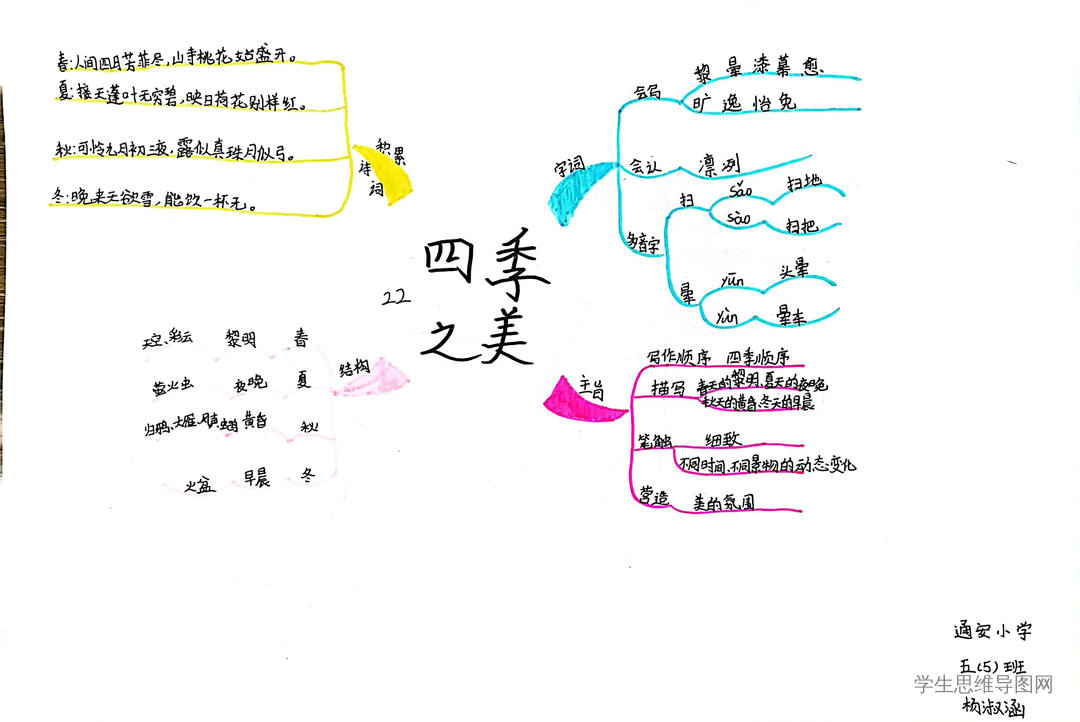 四季
之美
22
积累
诗词
春:人间四月芳菲尽,山寺桃花始盛开。
夏:接天莲叶无穷碧,映日荷花别样红。
秋:可怜九月初三夜,露似真珠月似弓。
冬:晚来天欲雪,能饮一杯无。
字词
会写
黎 晕 漆 幕 愈
旷 逸 怡 免
会认
凛 冽
多音字
扫
sǎo
扫地
sào
扫把
晕
yūn
头晕
yùn
晕车
结构
春
黎明
天空、彩云
夏
夜晚
萤火虫
秋
黄昏
归鸦、大雁、风声
冬
早晨
火盆
主旨
写作顺序 四季顺序
描写
春天的黎明、夏天的夜晚
秋天的黄昏、冬天的早晨
笔触
细致
不同时间、不同景物的动态变化
营造
美的氛围
通安小学
五(5)班
杨淑涵
学生思维导图网